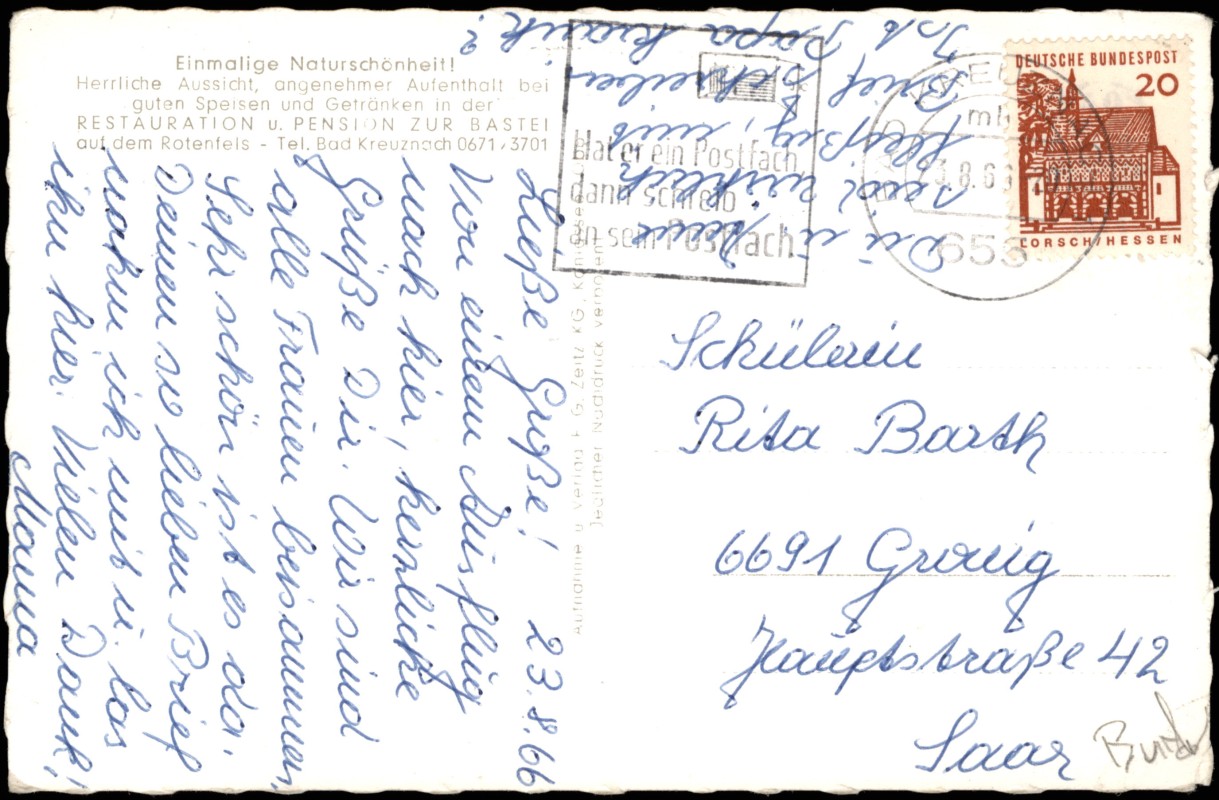 Einmalige Naturschönheit!
Herrliche Aussicht, angenehmer Aufenthalt bei
guten Speisen und Getränken in der
RESTAURATION u. PENSION ZUR BASTEI
auf dem Rotenfels - Tel. Bad Kreuznach 0671/3701
Ließe Grüße! 23.8.66
Von einem Ausflug
nach hier, herzliche
Grüße Dir. Wir sind
alle Frauen beisammen,
Sehr schön ist es da.
Deinen so lieben Brief
nahm ich mit u. las
ihn hier. Vielen Dank!
Mama
Du
recht
fleißig, mir
Brief schreiben
Ist Papa krank?
Aufnahme u. Verlag F. G. Zeitz KG., Königsee
Jeglicher Nachdruck verboten
Hat er ein Postfach
dann schreib
an sein Postfach
DEUTSCHE BUNDESPOST
20
LORSCH/HESSEN
mb
655
Schülerin
Rita Barth
6691 Gronig
Hauptstraße 42
Saar